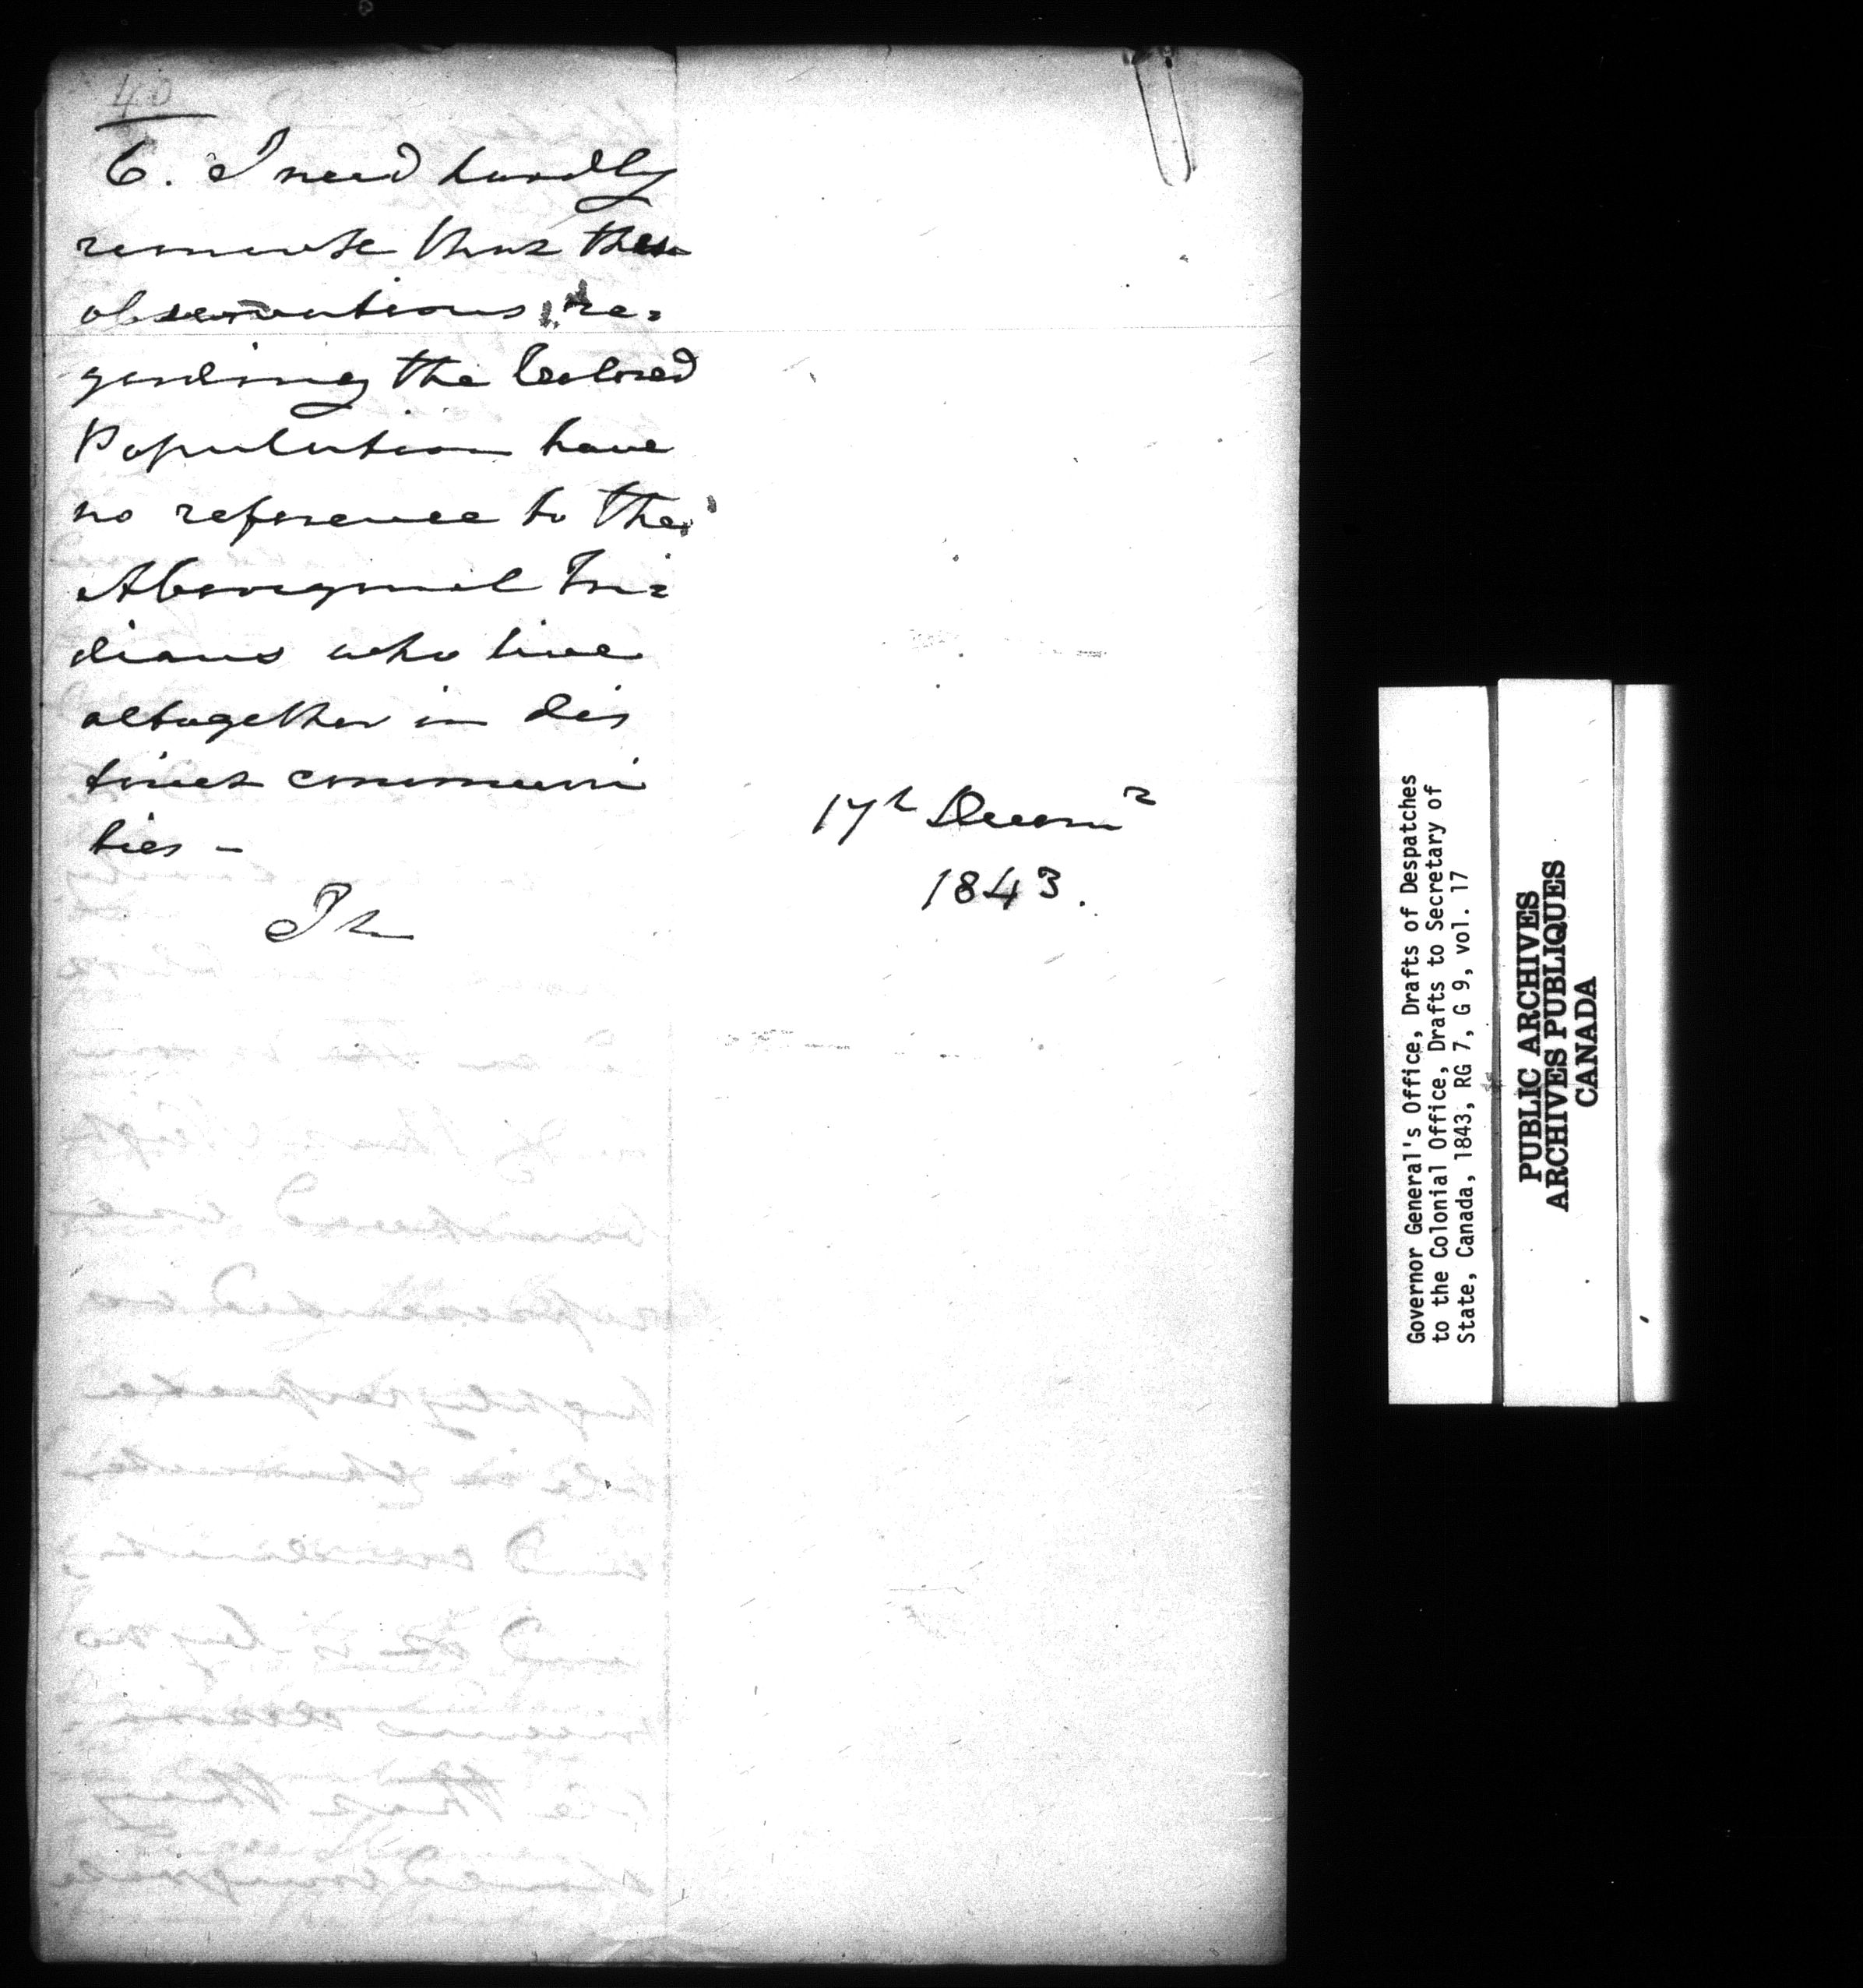 40
6. I need hardly
remark that these
observations re=
garding the Colored
Population have
no reference to the
Aboriginal In=
dians who live
altogether in dis
tinct communi
ties -
I h
17h Decemr
1843.
Governor General's Office, Drafts of Despatches
to the Colonial Office, Drafts to Secretary of
State, Canada, 1843, RG 7, G 9, vol. 17
PUBLIC ARCHIVES
ARCHIVES PUBLIQUES
CANADA